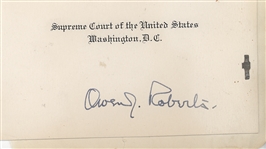 Supreme Court of the United States
Washington, D.C.
Owen J. Roberts.